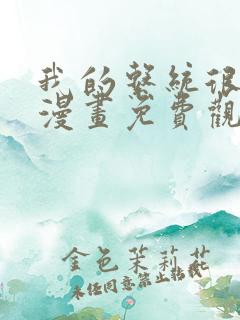 我的繫統很
漫畫免費觀
金色茉莉花
未任同意禁止転載